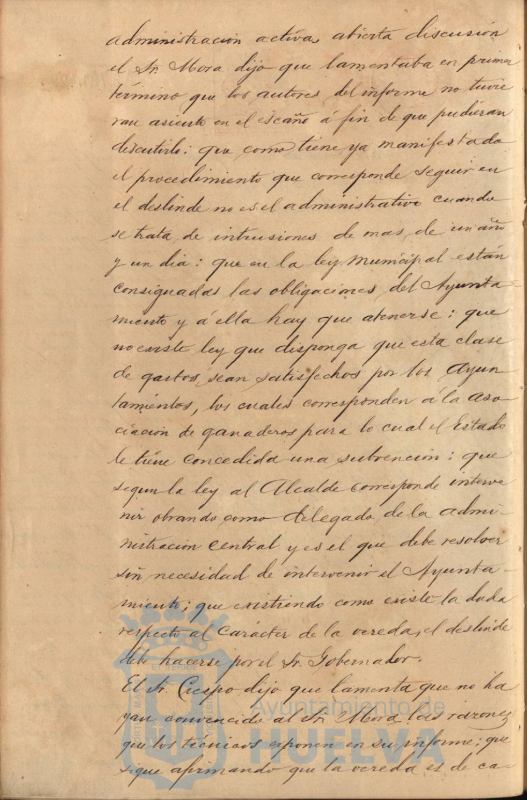 administracion activa, abierta discusión
el Sr. Mora dijo que lamentaba en primer
termino que los autores del informe no tuvie
ran asiento en el escaño á fin de que pudieran
discutirlo: que como tiene ya manifestado
el procedimiento que corresponde seguir en
el deslinde no es el administrativo cuando
se trata de intrusiones de mas de un año
y un dia: que en la ley Municipal están
consignadas las obligaciones del Ayunta-
miento y á ella hay que atenerse: que
no existe ley que disponga que esta clase
de gastos sean satisfechos por los Ayun
tamientos, los cuales corresponden á la aso-
ciacion de ganaderos para lo cual el Estado
le tiene concedida una subvención: que
segun la ley al Alcalde corresponde interve
nir obrando como delegado de la admi-
nistracion central y es el que debe resolver
sin necesidad de intervenir el Ayunta-
miento; que existiendo como existe la duda
respecto al carácter de la vereda, el deslinde
debe hacerse por el Sr. Gobernador.
El Sr. Crespo dijo que lamenta que no ha
yan convencido al Sr. Mora las razones
que los técnicos exponen en su informe; que
sigue afirmando que la vereda es de ca-
Ayuntamiento de
HUELVA